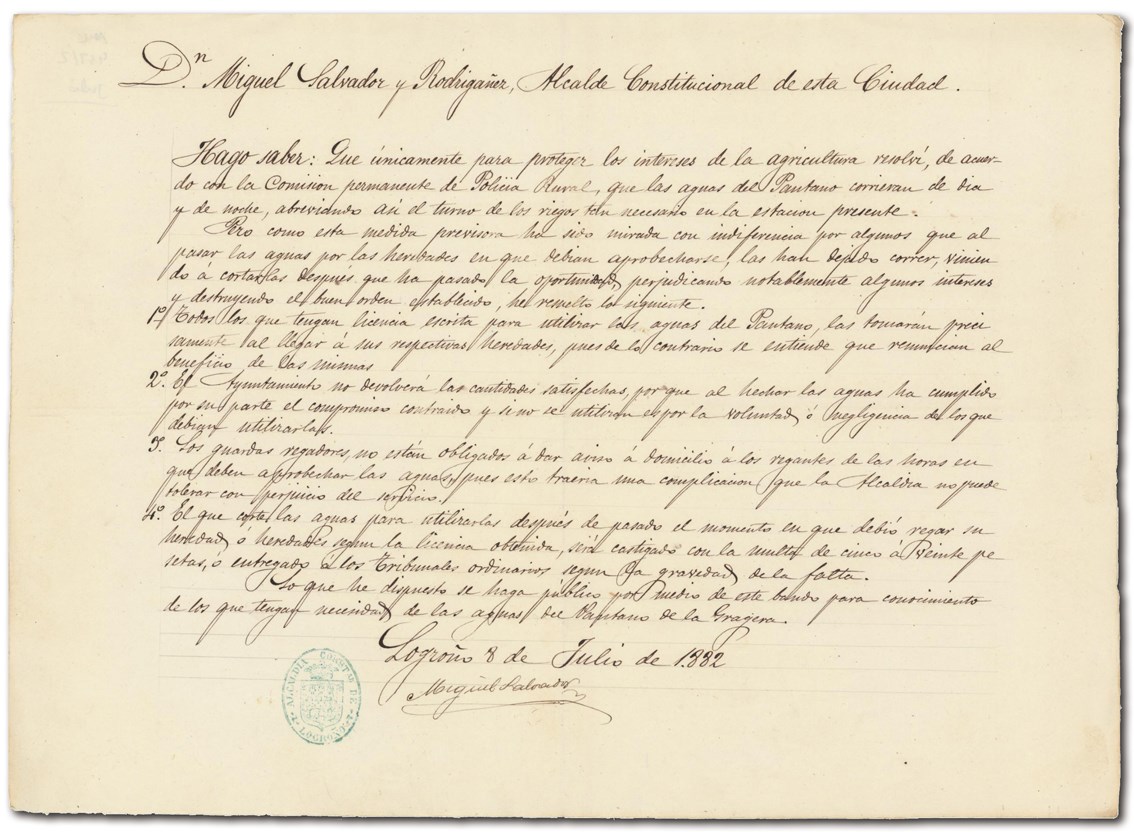 Dn. Miguel Salvador y Rodrigañez, Alcalde Constitucional de esta Ciudad.
Hago saber: Que únicamente para proteger los intereses de la agricultura resolví, de acuer-
do con la Comision permanente de Policia Rural, que las aguas del Pantano corrieran de dia
y de noche, abreviando así el turno de los riegos tan necesario en la estacion presente.
Pero como esta medida previsora ha sido mirada con indiferencia por algunos que al
pasar las aguas por las heredades en que debian aprobecharse, las han dejado correr, vinien
do á cortarlas después que ha pasado la oportunidad, perjudicando notablemente algunos intereses
y destruyendo el buen orden establecido, he resuelto lo siguiente.
1º Todos los que tengan licencia escrita para utilizar las aguas del Pantano, las tomarán preci
samente al llegar á sus respectivas heredades, pues de lo contrario se entiende que renuncian al
beneficio de las mismas
2º El Ayuntamiento no devolverá las cantidades satisfechas, porque al hechar las aguas ha cumplido
por su parte el compromiso contraido y si no se utilizan es por la voluntad ó negligencia de los que
debian utilizarlas.
3º Los guardas regadores, no están obligados á dar aviso á domicilio á los regantes de las horas en
que deben aprobechar las aguas, pues esto traeria una complicacion que la Alcaldia no puede
tolerar con perjuicio del servicio.
4º El que corte las aguas para utilizarlas después de pasado el momento en que debió regar su
heredad ó heredades segun la licencia obtenida, será castigado con la multa de cinco á veinte pe
setas, ó entregado á los Tribunales ordinarios segun la gravedad de la falta.
Lo que he dispuesto se haga público por medio de este bando para conocimiento
de los que tengan necesidad de las aguas del Pantano de la Grajera.
Logroño 8 de Julio de 1882
Miguel Salvador
ALCALDIA CONSTNAL DE LOGROÑO